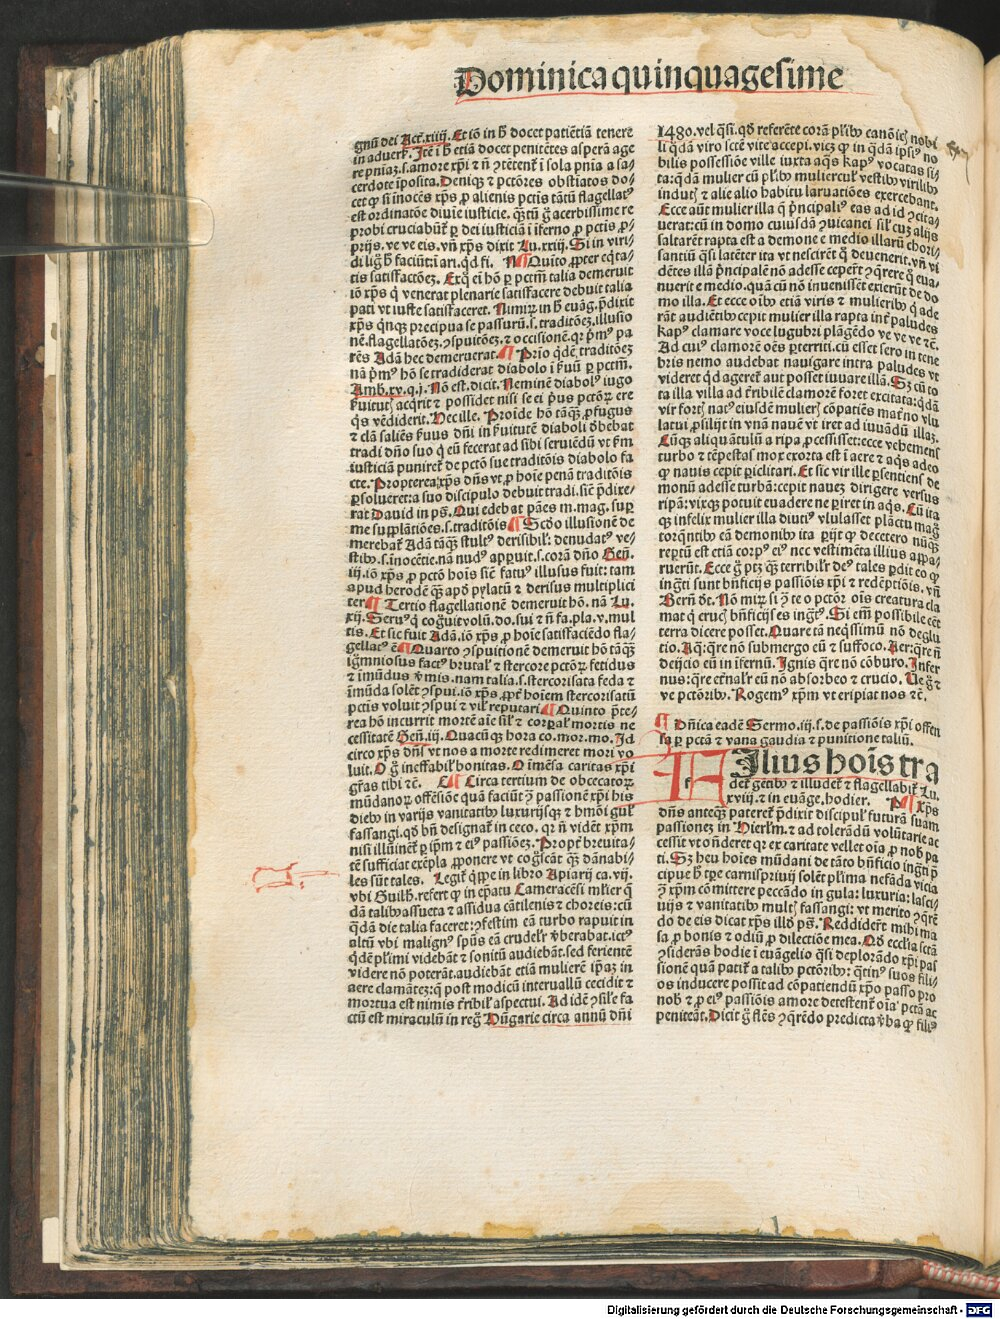 Dominica quinquagesime
gnũ dei Act̃.xiiij. Et iõ in h̃ docet patiẽtiã tenere
in aduerſ. Itẽ i h̃ etiã docet penitẽtes aſpera age
re pniaꝫ.ſ.amore xp̃i ⁊ ñ ꝯtẽtent̃ i ſola pnia a ſa⸗
cerdote ipoſita. Deniqꝫ ⁊ pctõres obſtiatos do⸗
cet ꝙ ſi inocẽs xp̃s ꝓ alienis pctis tãtũ flagellatꝰ
eſt ordinatõe diuie iuſticie. q̃ꝫtũ g̃ acerbiſſime re
probi cruciabũt᷑ ꝑ dei iuſticiã i iferno ꝓ pctis ꝓ⸗
prijs. ve ve eis. vñ xp̃s dixit Lu.xxiij. Si in viri⸗
di lig̃ h̃ faciũt: i ari. qd̃ fi. Quito ꝓpter eq̃ta⸗
tis ſatiſfactõeꝫ. Exq̃ ei hõ ꝑ pctm̃ talia demeruit
iõ xp̃s q̃ venerat plenarie ſatiſfacere debuit talia
pati vt iuſte ſatiſfaceret. Nimiꝝ in h̃ euãg̃.p̃dixit
xp̃s qnqꝫ precipua ſe paſſurũ.ſ.traditõeꝫ.illuſio
nẽ.flagellatõeꝫ.ꝯſpuitõeꝫ.⁊ occiſionẽ.qꝛ p̃mꝰ pa
rẽs Adã hec demeruerat. ¶ Prio qd̃ẽ traditõeꝫ
nã p̃mꝰ hõ ſe tradiderat diabolo i ſ̃uũ ꝑ pctm̃.
Amb.xv.q.j. Nõ eſt.dicit. Neminẽ diabolꝰ iugo
ſ̃uitutꝭ acq̃rit ⁊ poſſidet niſi ſe ei p̃us pctõꝝ ere
q̃s vẽdiderit. Hec ille. Proide hõ tãq̃ꝫ ꝓfugus
⁊ clã ſaliẽs ſ̃uus dñi in ſ̃uitutẽ diaboli d̃ebat
tradi dño ſuo q̃ eũ fecerat ad ſibi ſeruiẽdũ vt ẽm
iuſticiã puniret᷑ de pctõ ſue traditõis diabolo fa
cte. Propterea xp̃s dñs vt ꝓ hoie penã traditõis
ꝑſolueret: a ſuo diſcipulo debuit tradi. ſic̃ p̃dixe⸗
rat Dauid in pẽ. Qui edebat pães m. mag. ſup̃
me ſupplãtiões.ſ.traditõis ¶ Scd̃o illuſionẽ de
merebat᷑ Adã tãq̃ꝫ ſtultꝰ deriſibil᷑: denudatꝰ ve⸗
ſtibꝰ.ſ.inocẽtie.nã nudꝰ apꝑuit.ſ.corã dño Geñ.
iij. iõ xp̃s ꝓ pctõ hois ſic̃ fatuꝰ illuſus fuit: tam
apud herodẽ q̃ꝫ apd̃ pylatũ ⁊ deriſus multiplici
ter. ¶ Tertio flagellationẽ demeruit hõ. nã Lu.
xij. Seruꝰ q̃ cog̃uit volũ.do.ſui ⁊ ñ fa.pla.v.mul
tis. Et ſic fuit Adã. iõ xp̃s ꝓ hoie ſatiſfaciẽdo fla⸗
gellatꝰ ẽ ¶ Quarto ꝯſpuitionẽ demeruit hõ tãq̃ꝫ
ig̃miniosus factꝰ brutal᷑ ⁊ ſtercore pctõꝝ fetidus
⁊ imũdus ṽmis.nam talia.ſ.ſtercoriſata feda ⁊
imũda ſolẽt ꝯſpui. iõ xp̃s.ꝓpt̃ hoiem ſtercoriſatũ
pctis voluit ꝯſpui ⁊ vil᷑ reputari. ¶ Quinto p̃te⸗
rea hõ incurrit mortẽ aie ſil᷑ ⁊ corpal᷑ mortis ne
ceſſitatẽ Geñ.iij. Quacũqꝫ hora co.mor.mo. Id
circo xp̃s dñs vt nos a morte redimeret mori vo
luit. O g̃ ineffabil᷑ bonitas. O imẽſa caritas xp̃i
gr̃as tibi ⁊c̃. ¶ Circa tertium de obcecatõꝝ
mũdanoꝝ offẽſiõe quã faciũt ꝯ̃ paſſionẽ xp̃i his
diebꝰ in varijs vanitatibꝰ luxurijſqꝫ ⁊ hmõi gul᷑
faſſangi. qd̃ bñ deſignat᷑ in ceco. qꝛ ñ vidẽt xp̃m
niſi illũinẽt᷑ ꝑ ip̃m ⁊ eiꝰ paſſiõeꝫ. Propt̃ breuita⸗
tẽ ſufficiat exẽpla ꝓponere vt cog̃ſcãt q̃ꝫ dãnabi⸗
les ſũt tales. Legit᷑ q̃ꝑe in libro Apiarij ca.vij.
vbi Guilh̃.refert ꝙ in eṗatu Cameracẽſi ml᷑ier q̃
dã talibꝰ aſſueta ⁊ aſſidua cãtilenis ⁊ choreis: cũ
q̃dã die talia faceret: ꝯfeſtim eã turbo rapuit in
altũ vbi malignꝰ ſpũs eã crudel᷑r v̾berabat.ictꝰ
qd̃ẽ pl᷑imi videbãt ⁊ ſonitũ audiebãt.ſed ferientẽ
videre nõ poterãt.audiebãt etiã mulierẽ ip̃aꝫ in
aere clamãteꝫ: q̃ poſt modicũ interuallũ cecidit ⁊
mortua eſt nimis t̃ribil᷑ aſpectui. Ad idẽ ꝯſil᷑e fa
ctũ eſt miraculũ in regͦ Vũgarie circa annũ dñi
1480.vel q̃ſi. qd̃ referẽte corã pl᷑ibꝰ canõicꝭ nobi
li q̃dã viro ſctẽ vite accepi. vicꝫ ꝙ in q̃dã ipſiꝰ no
bilis poſſeſſiõe ville iuxta aq̃s Kapꝰ vocatas ſi⸗
ta: q̃dã mulier cũ pl᷑ibꝰ muliercul᷑ veſtibꝰ virilibꝰ
indutꝭ ⁊ alie alio habitu laruatiões exercebant.
Ecce aũt mulier illa q̃ p̃ncipaliꝰ eas ad id ꝯcita⸗
uerat: cũ in domo cuiuſdã ꝯuicanei ſil᷑ cuꝫ alijs
ſaltarẽt rapta eſt a demone e medio illarũ chori⸗
ſantiũ q̃ſi latẽter ita vt neſcirẽt q̃ deuenerit. vñ vi
dẽtes illã p̃ncipalẽ nõ adeſſe ceper̃t ꝯq̃rere q̃ eua⸗
nuerit e medio. quã cũ nõ inueniſſẽt exierũt de do
mo illa. Et ecce oĩbꝰ etiã viris ⁊ mulieribꝰ q̃ ade
rãt audiẽtibꝰ cepit mulier illa rapta int̃ paludes
Kapꝰ clamare voce lugubri plãgẽdo ve ve ve ⁊c̃.
Ad cuiꝰ clamorẽ oẽs ꝑterriti. cũ eſſet ſero in tene
bris nemo audebat nauigare intra paludes vt
videret qd̃ ageret᷑ aut poſſet iuuare illã. Sꝫ cũ to
ta illa villa ad t̃ribilẽ clamorẽ foret excitata: q̃dã
vir fortꝭ natꝰ eiuſdẽ mulierꝭ cõpatiẽs mat̃no vlu
latui ꝓſilijt in vnã nauẽ vt iret ad iuuãdũ illaꝫ.
Cũqꝫ aliquãtulũ a ripa ꝓceſſiſſet: ecce vehemens
turbo ⁊ tẽpeſtas mox exorta eſt i aere ⁊ aq̃s adeo
ꝙ nauis cepit ꝑiclitari. Et ſic vir ille ꝑſentiens de
monũ adeſſe turbã: cepit naueꝫ dirigere verſus
ripã: vixqꝫ potuit euadere ne ꝑiret in aq̃s. Cũ ita
qꝫ infelix mulier illa diutiꝰ vlulaſſet plãctu mag̃
torq̃ntibꝰ eã demonibꝰ ita ꝑijt ꝙ decetero nũq̃ꝫ
reptũ eſt etiã corpꝰ eiꝰ ncc veſtimẽta illius aꝑpa⸗
ruerũt. Ecce g̃ ptꝫ q̃ꝫ terribil᷑r deꝰ tales ꝑdit eo ꝙ
ing̃ti ſunt bñficijs paſſiõis xp̃i ⁊ redẽptiõis. vñ
Berñ d̃t. Nõ miꝝ ſi ꝯ̃ te o pctõr oĩs creatura cla
mat q̃ erucꝭ bñficijs es ing̃tꝰ. Si em̃ poſſibile eẽt
terra dicere poſſet. Quare tã neq̃ſſimũ nõ deglu
tio. Aq̃: q̃re nõ ſubmergo eũ ⁊ ſuffoco. Aer: q̃re ñ
deijcio eũ in iſernũ. Ignis q̃re nõ cõburo. Infer
nus: q̃re et̃nal᷑r eũ nõ abſorbeo ⁊ crucio. Ue g̃ ⁊
ve pctõribꝰ. Rogemꝰ xp̃m vt eripiat nos ⁊c̃.
¶ Dñica eadẽ Sermo.iij.ſ.de paſſiõis xp̃i offen
ſa ꝑ pctã ⁊ vana gaudia ⁊ punitione taliũ.
FIlius hoĩs tra
det᷑ gẽtibꝰ ⁊ illudet᷑ ⁊ flagellabit᷑ Lu.
xviij.⁊ in euãge.hodier. ¶ Xp̃s
dñs anteq̃ꝫ pateret᷑ p̃dixit diſcipul᷑ futurã ſuam
paſſioneꝫ in Hierl᷑m.⁊ ad tolerãdũ volũtarie ac
ceſſit vt oñderet qꝛ ex caritate vellet oĩa ꝓ nob̃ pa
ti. Sꝫ heu hoies mũdani de tãto bñficio ing̃ti p̃
cipue h̃ tp̃e carniſpriuij ſolẽt pl᷑ima nefãda vicia
ꝯ̃ xp̃m cõmittere peccãdo in gula: luxuria: laſci⸗
uijs ⁊ vanitatibꝰ multꝭ faſſangi: vt merito ꝯq̃rẽ
do de eis dicat xp̃s illd̃ pẽ. Reddider̃t mihi ma
la ꝓ bonis ⁊ odiũ ꝓ dilectiõe mea. Qd̃ eccl᷑ia ſctã
ꝯſiderãs hodie i euãgelio q̃ſi deplorãdo xp̃i paſ
ſionẽ quã patit᷑ a talibꝰ pctõribꝰ: q̃tinꝰ ſuos fili⸗
os inducere poſſit ad cõpatiendũ xp̃o paſſo pro
nob̃ ⁊ ꝓ eiꝰ paſſiõis amore deteſtent᷑ oĩa pctã ac
peniteãt. Dicit g̃ flẽs ⁊ ꝯq̃rẽdo predicta v̾ba ꝙ filiꝰ
Digitalisierung gefördert durch die Deutsche Forschungsgemeinschaft - DFG